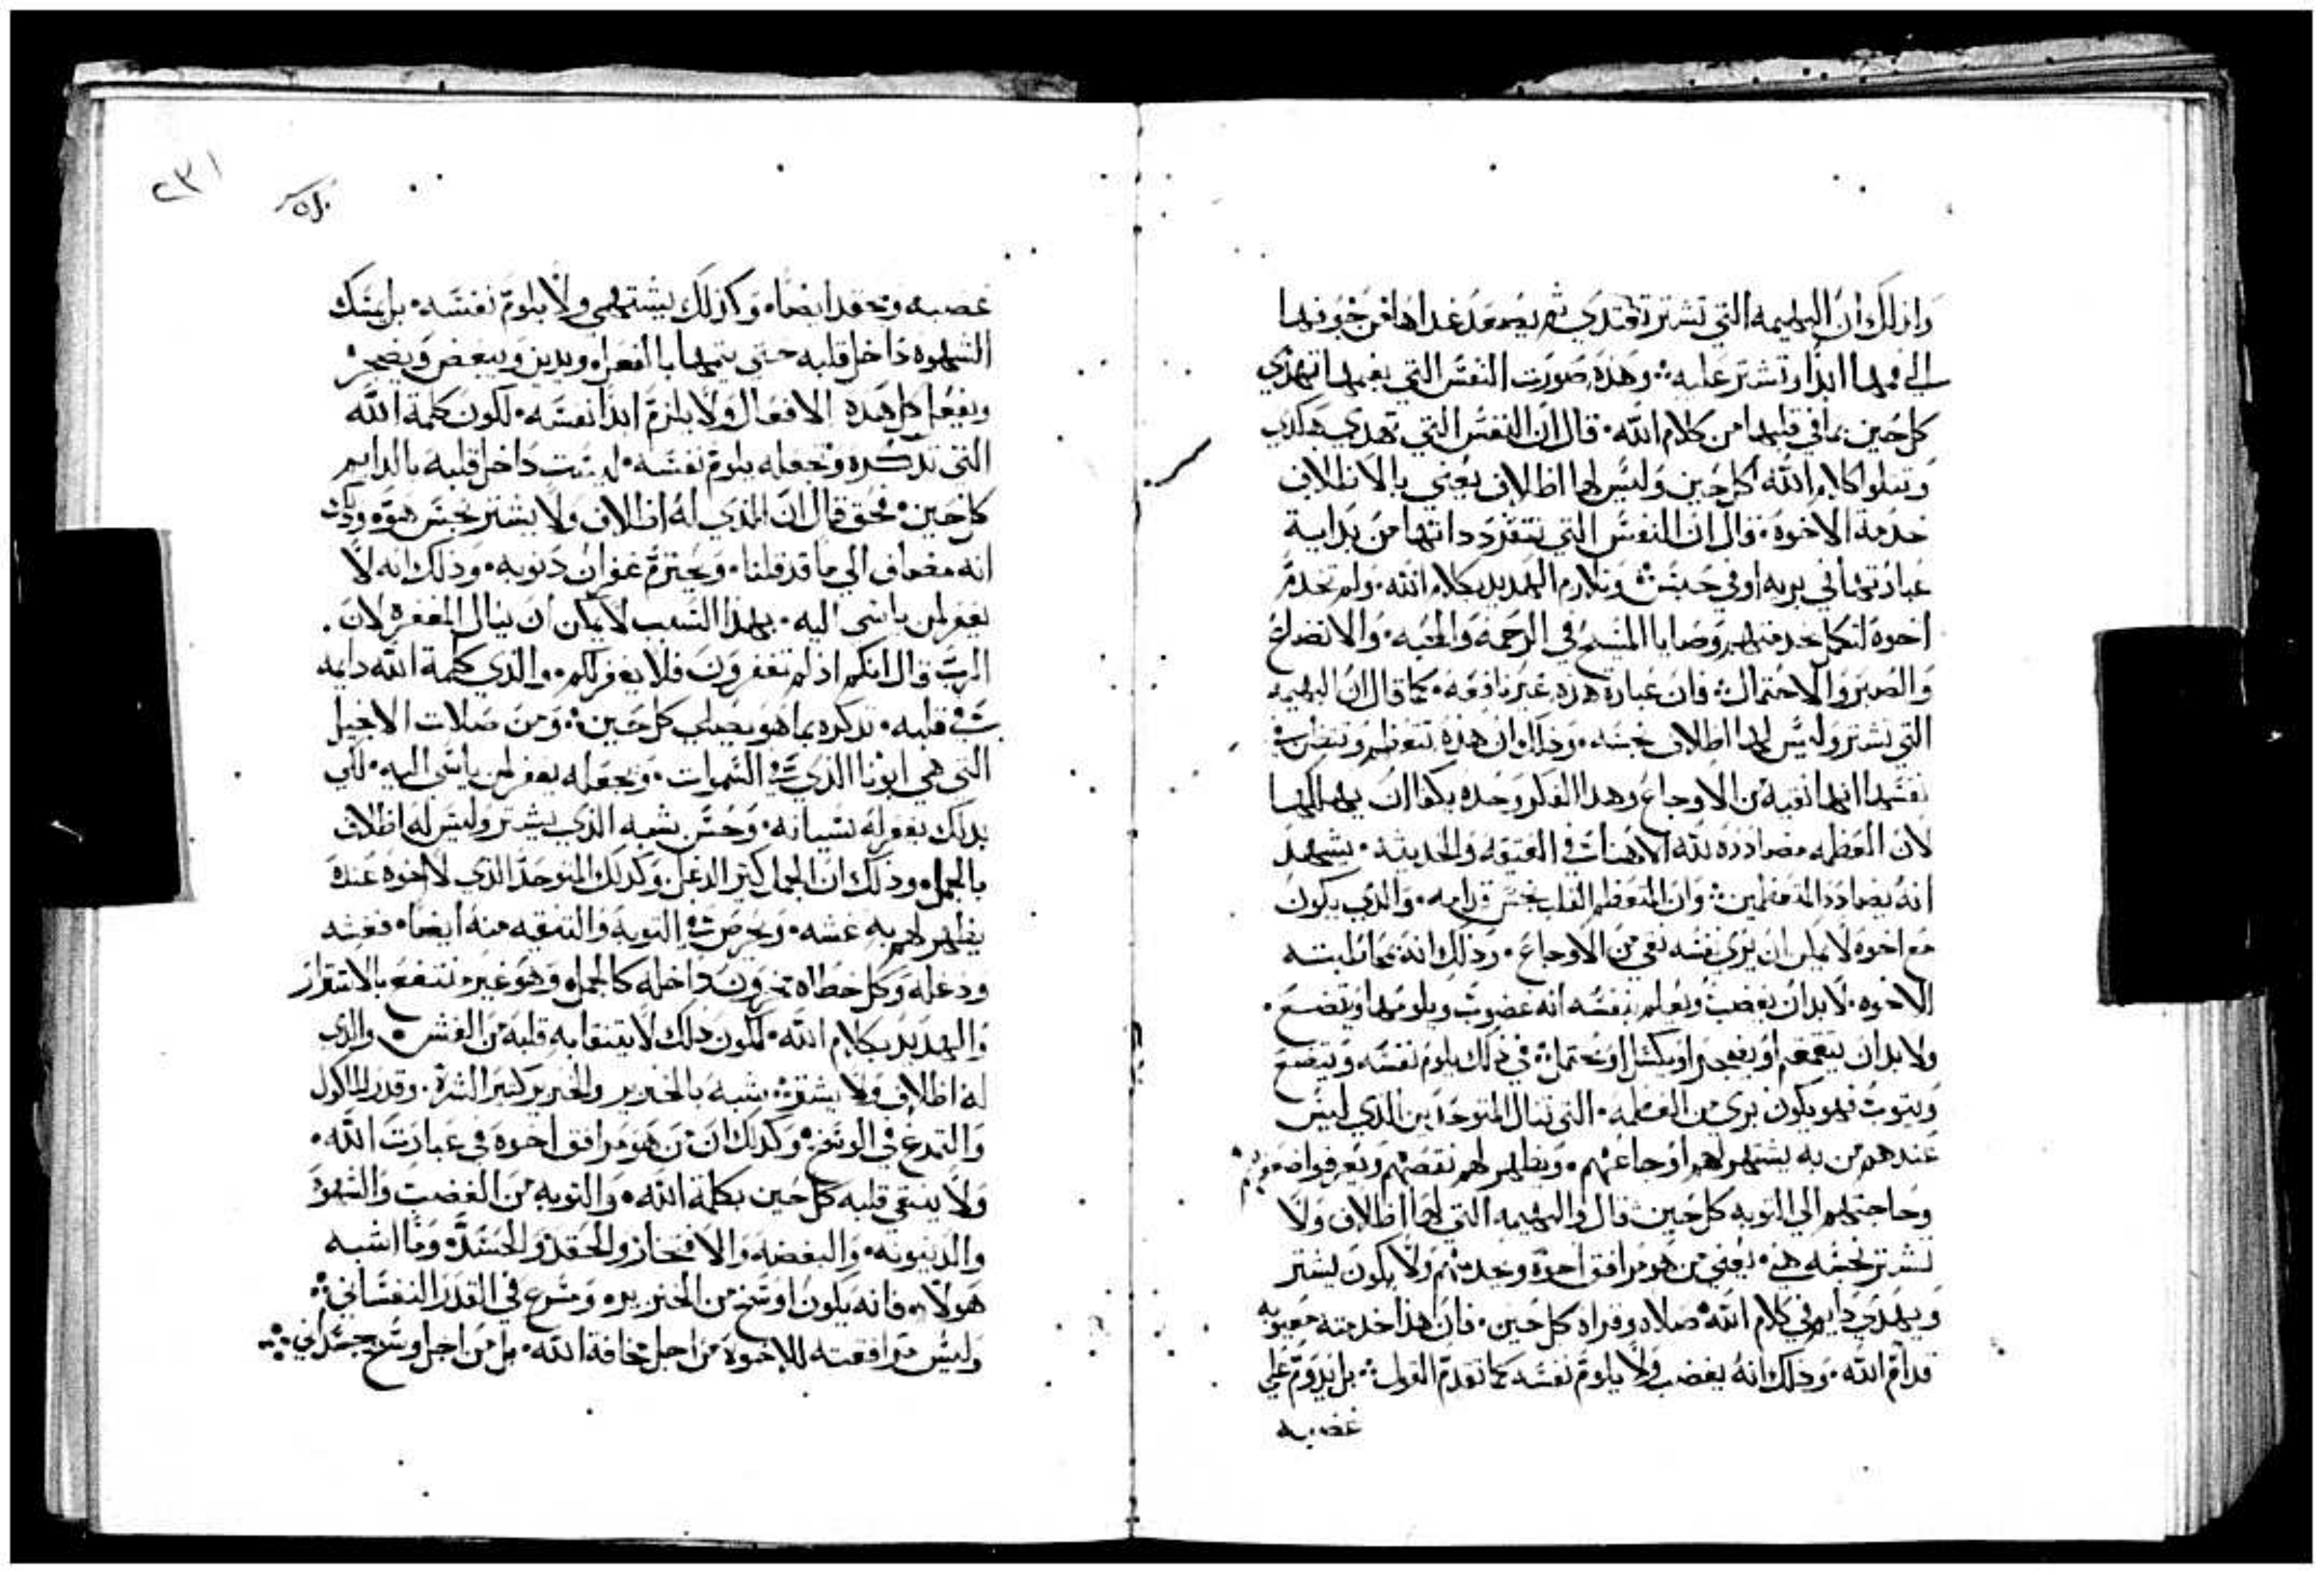 وذلك ان البهيمه التي تشتر تغتدي ثم يصعد غداها من جوفها
الي فمها ابدا وتشتر عليه وهذه صورت النفس التي بفمها تهدي
كل حين بما في قلبها من كلام الله قال ان النفس التي تهدي هكدي
وتتلوا كلام الله كل حين وليس لها اظلاف يعني بالاظلاف
خدمة الاخوه قال ان النفس التي تتفرد داتها من بداية
عبادتها في بريه او في حبس وتلازم الهديد بكلام الله ولم تخدم
اخوه لتكمل بخدمتهم وصايا المسيح في الرحمه والمحبه والاتضاع
والصبر والاحتمال فان عبادة هذه غير نافعه كما قال ان البهيمه
التي تشتر وليس لها اظلاف نجسه وذلك ان هذه تتعظم وتظن في
نفسها انها نقيه من الاوجاع وهدا الفكر وحده يكفا ان يهلكها
لان العظمه مضادده لله الاهنا في العتيقه والحديثه يشهد
انه يضادد المتعظمين وان المتعظم القلب نجس قدامه والذي يكون
مع اخوه لا يمكن ان يري نفسه نقي من الاوجاع وذلك انه بمخالطته
الاخوه لا بد ان يغضب ويعلم بنفسه انه غضوب ويلومها ويتضع
ولابد ان يتقمقم او يضجر او يكسل او في ذلك يلوم نفسه ويتضع
ويتوب فهو يكون بري من العظمه التي تنال المتوحدين الذي ليس
عندهم من به يشتهر لهم اوجاعهم ويظهر لهم نقصهم ويعرفوا ضعفهم
وحاجتهم الي التوبه كل حين قال والبهيمه التي لها اظلاف ولا
تشتر نجسه هي يعني من هو مرافق اخوه وخدمتهم ولا يكون يشتر
ويهدي دايم في كلام الله صلاه وقراه كل حين فان هذا خدمته معيوبه
قدام الله وذلك انه يغضب ولا يلوم نفسه كما تقدم القول بل يدوم علي
غضبه
٢٣١
غضبه وحقد ايضا وكذلك يشتهي ولا يلوم نفسه بل يمسك
الشهوه داخل قلبه حتي يتمها بالفعل ويدين ويبغض ويضجر
ويفعل كل هذه الافعال ولا يلزم ابدا نفسه لكون كلمة الله
التي تذكره وتجعله يلوم نفسه ليست داخل قلبه بالدايم
كل حين فبحق قال ان الذي له اظلاف ولا يشتر نجس هو وذلك
انه مضاف الي ما قد قلنا ويحترم غفران دنوبه وذلك انه لا
يغفر لمن ياسي اليه بهذا السبب لا يمكن ان ينال المغفره لان
الرب قال انكم اذ لم تغفرون فلا يغفر لكم والذي كلمة الله دايمه
في قلبه تدكره بما هو يصلي كل حين ومن صلات الانجيل
التي هي ابونا الذي في السموات وتجعله يغفر لمن ياسي اليه لكي
بدلك يغفر له نسيانه وحسن يشبه الذي يشتر وليس له اظلاف
بالجمل وذلك ان الجمل كتير الدغل وكدلك المتوحد الذي لا اخوه عنده
يظهر لهم به غشه ويحرص في التوبه والتنقيه منه ايضا فغشه
ودغله وكل خطاه مخزون داخله كالجمل وهو غير منتفع بالاشترار
والهديد بكلام الله لكون دلك لا يتنقا به قلبه من الغش والدي
له اظلاف ولا يشتر يشبه بالخنزير والخنزير كتير الشره وقدر الماكول
والتمرغ في الوسخ وكدلك ان من هو مرافق اخوه في عبادت الله
ولا ينقي قلبه كل حين بكلمة الله والتوبه من الغضب والشهوه
والدينونه والبغضه والافتخار والحقد والحسد وما اشبه
هولاء فانه يكون اوسخ من الخنزير ومتمرغ في القدر النفساني
وليس مرافقته للاخوه من اجل مخافة الله بل من اجل وسخ جسداني